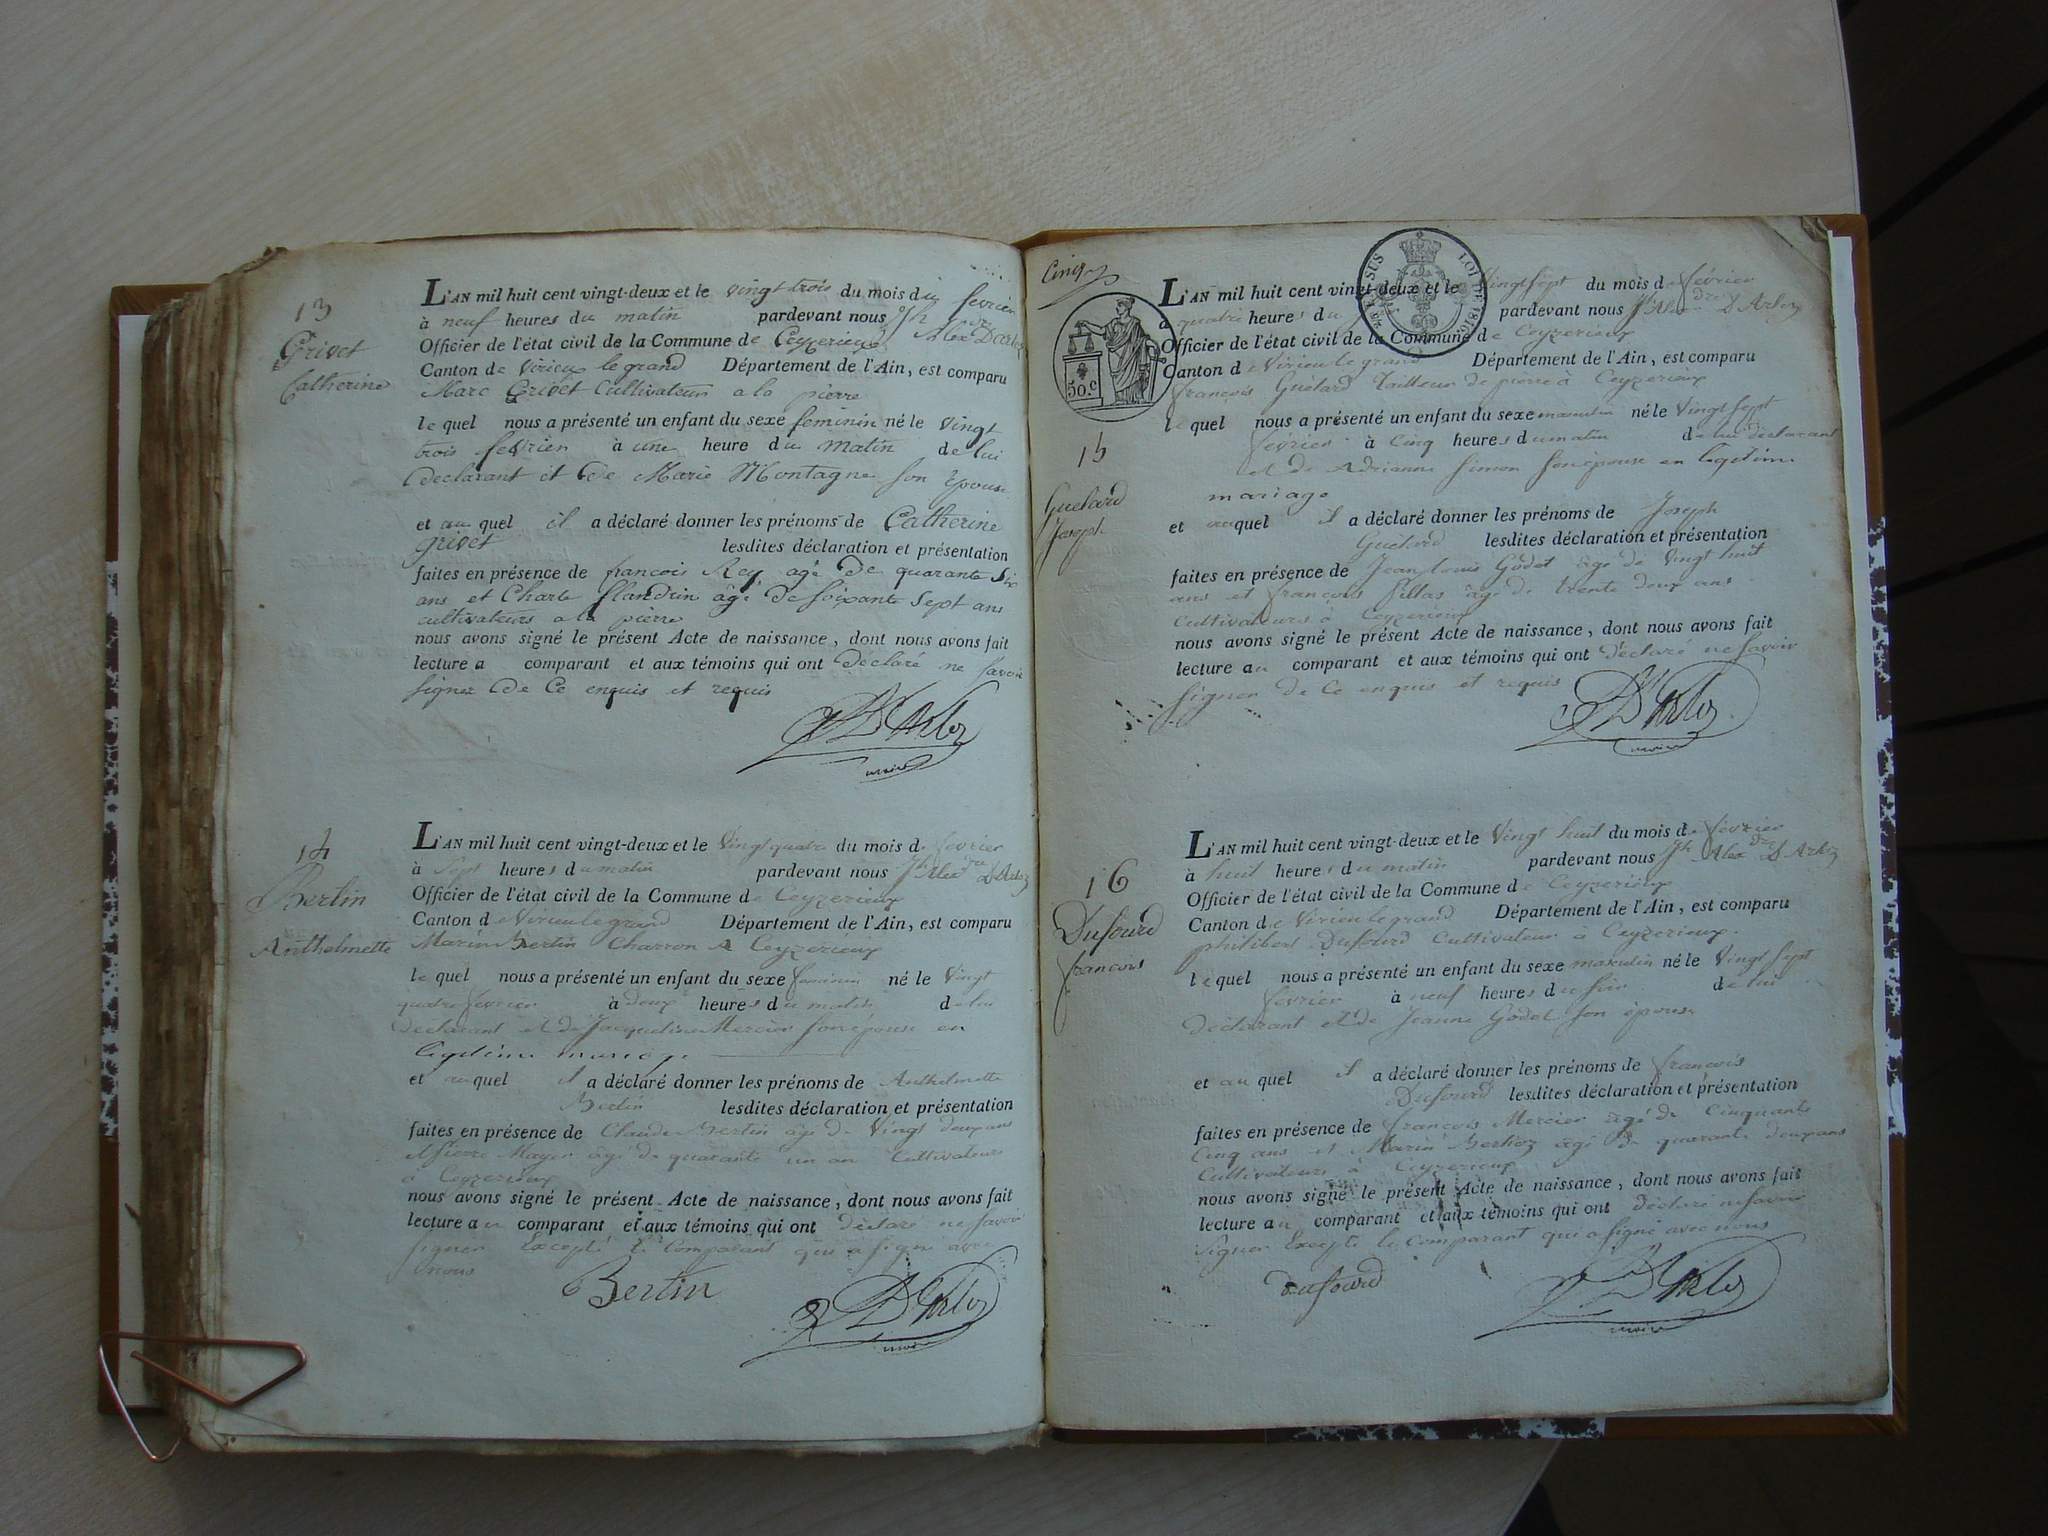 13
Grivet
Catherine
L'AN mil huit cent vingt-deux et le vingt trois du mois du fevrier
à neuf heures du matin pardevant nous Jh Alexdre Darloz
Officier de l'état civil de la Commune de Ceyzerieux
Canton de Virieux le grand Département de l'Ain, est comparu
Marc Grivet Cultivateur a la pierre
le quel nous a présenté un enfant du sexe feminin né le vingt
trois fevrier à une heure du matin de lui
declarant et de Marie Montagne son épouse
et au quel il a déclaré donner les prénoms de Catherine
grivet lesdites déclaration et présentation
faites en présence de francois Rey agé de quarante six
ans et Charle flandrin agé de soixante sept ans
cultivateurs a la pierre
nous avons signé le présent Acte de naissance, dont nous avons fait
lecture a comparant et aux témoins qui ont déclaré ne savoir
signer de ce enquis et requis
D'Arloz
maire
14
Bertin
Anthelmette
L'AN mil huit cent vingt-deux et le vingt quatre du mois de fevrier
à Sept heures du matin pardevant nous Jh Alexdre D'Arloz
Officier de l'état civil de la Commune de Ceyzerieux
Canton de Virieu le grand Département de l'Ain, est comparu
Marin Bertin Charron a Ceyzerieux
le quel nous a présenté un enfant du sexe feminin né le Vingt
quatre fevrier à deux heures du matin de lui
declarant et de Jacqueline Mercier son épouse en
legitime mariage
et auquel il a déclaré donner les prénoms de Anthelmette
Bertin lesdites déclaration et présentation
faites en présence de Claude Bertin âgé de Vingt deux ans
et pierre Mayer âgé de quarante un an Cultivateurs
à Ceyzerieux
nous avons signé le présent Acte de naissance, dont nous avons fait
lecture au comparant et aux témoins qui ont déclaré ne savoir
signer Excepté le Comparant qui a signé avec
nous
Bertin D'Arloz
maire
Cinq
VERSUS LOI DE 1816
50.c
15
Guelard
Joseph
L'AN mil huit cent vingt-deux et le Vingt sept du mois de février
à quatre heures du pardevant nous Jh Alexdre D'Arloz
Officier de l'état civil de la Commune de Ceyzerieux
Canton de Virieu le grand Département de l'Ain, est comparu
françois Guélard Tailleur de pierre à Ceyzerieux
le quel nous a présenté un enfant du sexe masculin né le Vingt sept
février à Cinq heures du matin de lui déclarant
et de Adrianne Simon son épouse en legitime
mariage
et auquel il a déclaré donner les prénoms de Joseph
Guélard lesdites déclaration et présentation
faites en présence de Jean Louis Godet âgé de Vingt huit
ans et françois Sillas âgé de trente deux ans
Cultivateurs à Ceyzerieux
nous avons signé le présent Acte de naissance, dont nous avons fait
lecture au comparant et aux témoins qui ont déclaré ne savoir
signer de ce enquis et requis
D'Arloz
maire
16
Dufourd
francois
L'AN mil huit cent vingt-deux et le Vingt huit du mois de février
à huit heures du matin pardevant nous Jh Alexdre D'Arloz
Officier de l'état civil de la Commune de Ceyzerieux
Canton de Virieu le grand Département de l'Ain, est comparu
philibert Dufourd Cultivateur à Ceyzerieux.
le quel nous a présenté un enfant du sexe masculin né le Vingt sept
fevrier à neuf heures du soir de lui
déclarant et de Jeanne Godet son épouse
et au quel il a déclaré donner les prénoms de françois
Dufourd lesdites déclaration et présentation
faites en présence de françois Mercier agé de Cinquante
Cinq ans et Marin Berlioz agé de quarante deux ans
Cultivateurs à Ceyzerieux
nous avons signé le présent Acte de naissance, dont nous avons fait
lecture au comparant et aux témoins qui ont déclaré ne savoir
signer Excepté le comparant qui a signé avec nous
dufourd D'Arloz
maire